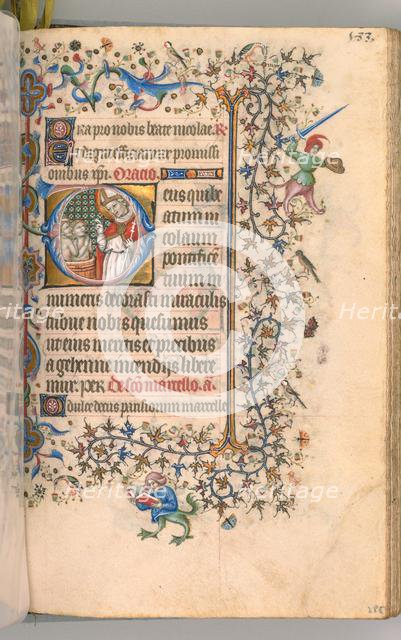 133
Ora pro nobis beate nicolae. R
Ut digni efficiamur promissi
onibus xpi. Oratio.
Deus qui be
atum ni
colaum
pontificē
tuum in
numeris decorasti miraculis
nobis quesumus
ut eius meritis et precibus
a gehenne incendiis libere
mur. per De sco marcello. a.
O dulce decus parisiorum marcelle
Heritage
Heritage
Heritage
Images
Images
Images